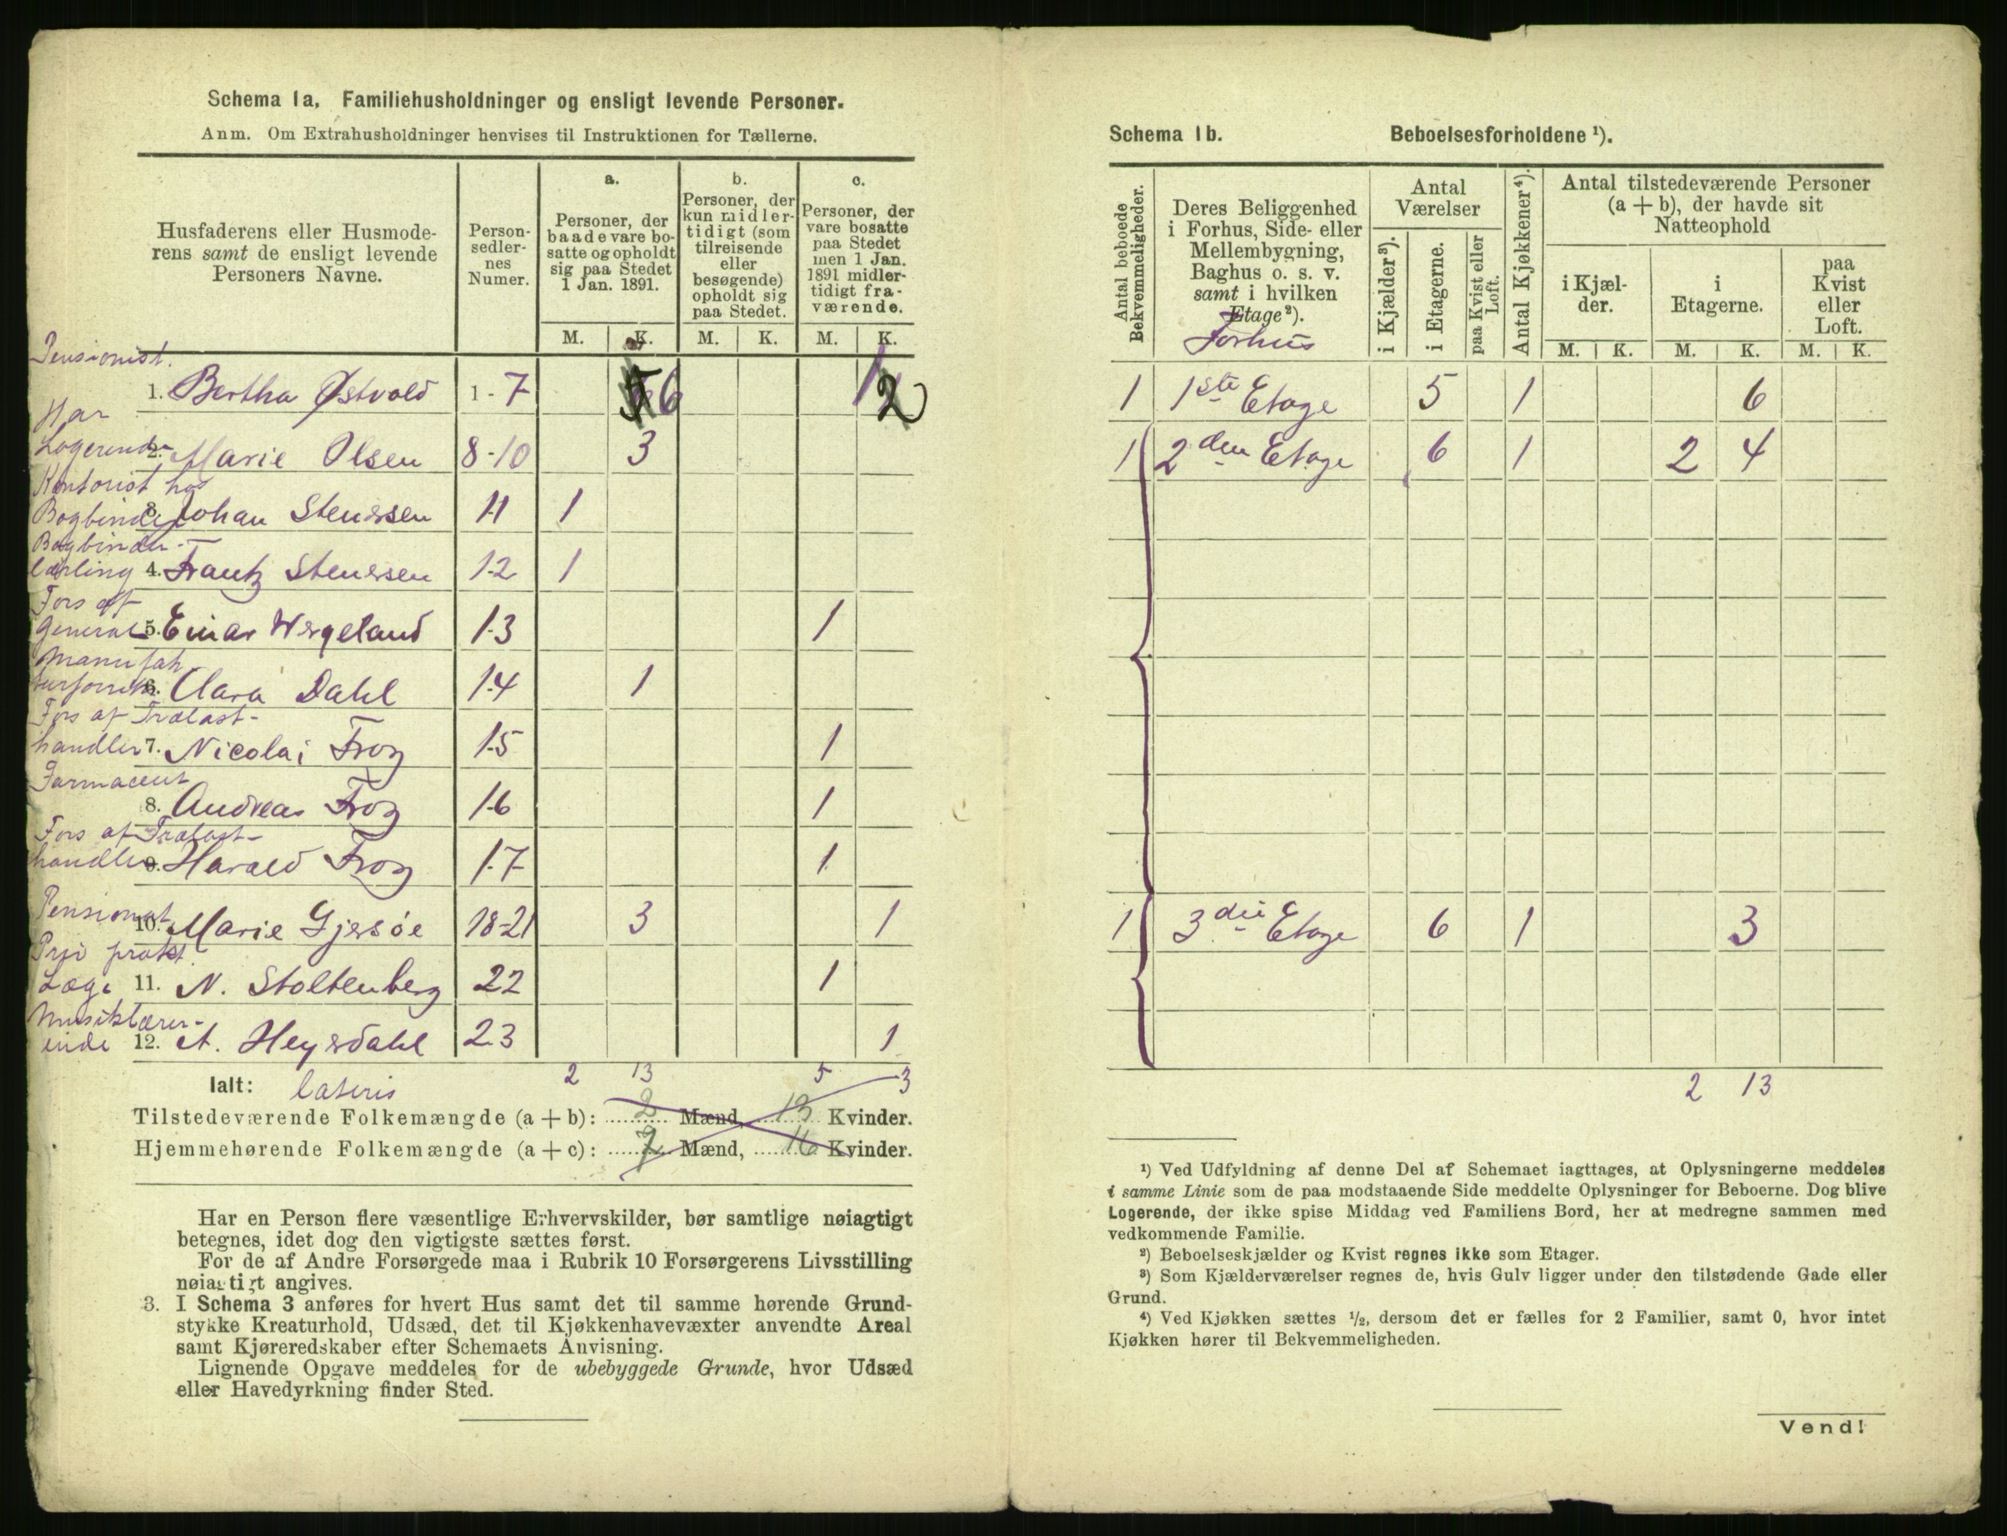 Schema 1a. Familiehusholdninger og ensligt levende Personer.
Anm. Om Extrahusholdninger henvises til Instruktionen for Tællerne.
Husfaderens eller Husmoderens samt de ensligt levende Personers Navne.
Personsedlernes Numer.
a.
Personer, der baade vare bosatte og opholdt sig paa Stedet 1 Jan. 1891.
b.
Personer, der kun midlertidigt (som tilreisende eller besøgende) opholdt sig paa Stedet.
c.
Personer, der vare bosatte paa Stedet men 1 Jan. 1891 midlertidigt fraværende.
M. K. M. K. M. K.
Pensionist.
1. Bertha Østvold 1-7 6 2
Har
Logerende 2. Marie Olsen 8-10 3
Kontorist hos
Bogbinder 3. Johan Stenersen 11 1
Bogbinder-
lærling 4. Frantz Stenersen 12 1
Fors af
General 5. Einar Wergeland 13 1
Manufak
turforretn 6. Clara Dahl 14 1
Fors af Trælast-
handler 7. Nicolai Frog 15 1
Farmaceut
8. Andreas Frog 16 1
Fors af Trælast-
handler 9. Harald Frog 17 1
Pensionat
10. Marie Gjersøe 18-21 3 1
Priv prakt
Læge 11. N. Stoltenberg 22 1
Musiklærer-
inde 12. A. Heyerdahl 23 1
Ialt: lateris 2 13 5 3
Tilstedeværende Folkemængde (a + b): 2 Mænd, 13 Kvinder.
Hjemmehørende Folkemængde (a + c): 7 Mænd, 16 Kvinder.
Har en Person flere væsentlige Erhvervskilder, bør samtlige nøiagtigt
betegnes, idet dog den vigtigste sættes først.
For de af Andre Forsørgede maa i Rubrik 10 Forsørgerens Livsstilling
nøiagtigt angives.
3. I Schema 3 anføres for hvert Hus samt det til samme hørende Grund-
stykke Kreaturhold, Udsæd, det til Kjøkkenhavevæxter anvendte Areal
samt Kjøreredskaber efter Schemaets Anvisning.
Lignende Opgave meddeles for de ubebyggede Grunde, hvor Udsæd
eller Havedyrkning finder Sted.
Schema 1b. Beboelsesforholdene ¹).
Antal beboede Bekvemmeligheder.
Deres Beliggenhed i Forhus, Side- eller Mellembygning, Baghus o. s. v. samt i hvilken Etage²).
Forhus
Antal Værelser
i Kjælder³).
i Etagerne.
paa Kvist eller Loft.
Antal Kjøkkener⁴).
Antal tilstedeværende Personer (a + b), der havde sit Natteophold
i Kjælder.
i Etagerne.
paa Kvist eller Loft.
M. K. M. K. M. K.
1 1ste Etage 5 1 6
1 2den Etage 6 1 2 4
1 3die Etage 6 1 3
2 13
¹) Ved Udfyldning af denne Del af Schemaet iagttages, at Oplysningerne meddeles
i samme Linie som de paa modstaaende Side meddelte Oplysninger for Beboerne. Dog blive
Logerende, der ikke spise Middag ved Familiens Bord, her at medregne sammen med
vedkommende Familie.
²) Beboelseskjælder og Kvist regnes ikke som Etager.
³) Som Kjælderværelser regnes de, hvis Gulv ligger under den tilstødende Gade eller
Grund.
⁴) Ved Kjøkken sættes ½, dersom det er fælles for 2 Familier, samt 0, hvor intet
Kjøkken hører til Bekvemmeligheden.
Vend!